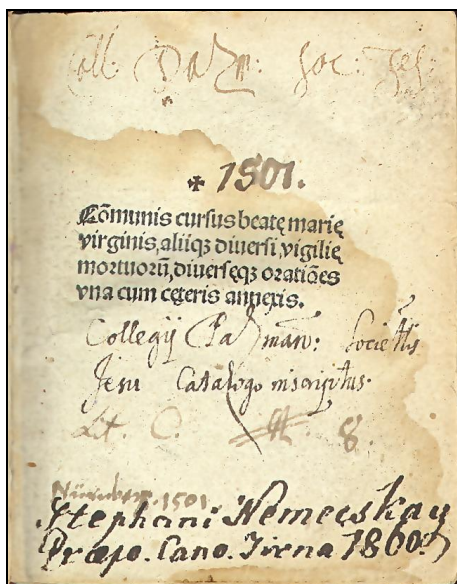 Coll: Pazm: Soc: Jes:
✠ 1501.
Cõmunis cursus beatę marię
virginis, aliiqꝫ diuersi, vigilię
mortuorũ, diuersęqꝫ oratiões
vna cum cęteris annexis.
Collegij Pazman: Societtis
Jesu Catalogo inscriptus.
Lit. C. 8.
Nürnberg. 1501
Stephani Nemecskay
Præpo. Cano. Tirna 1800.